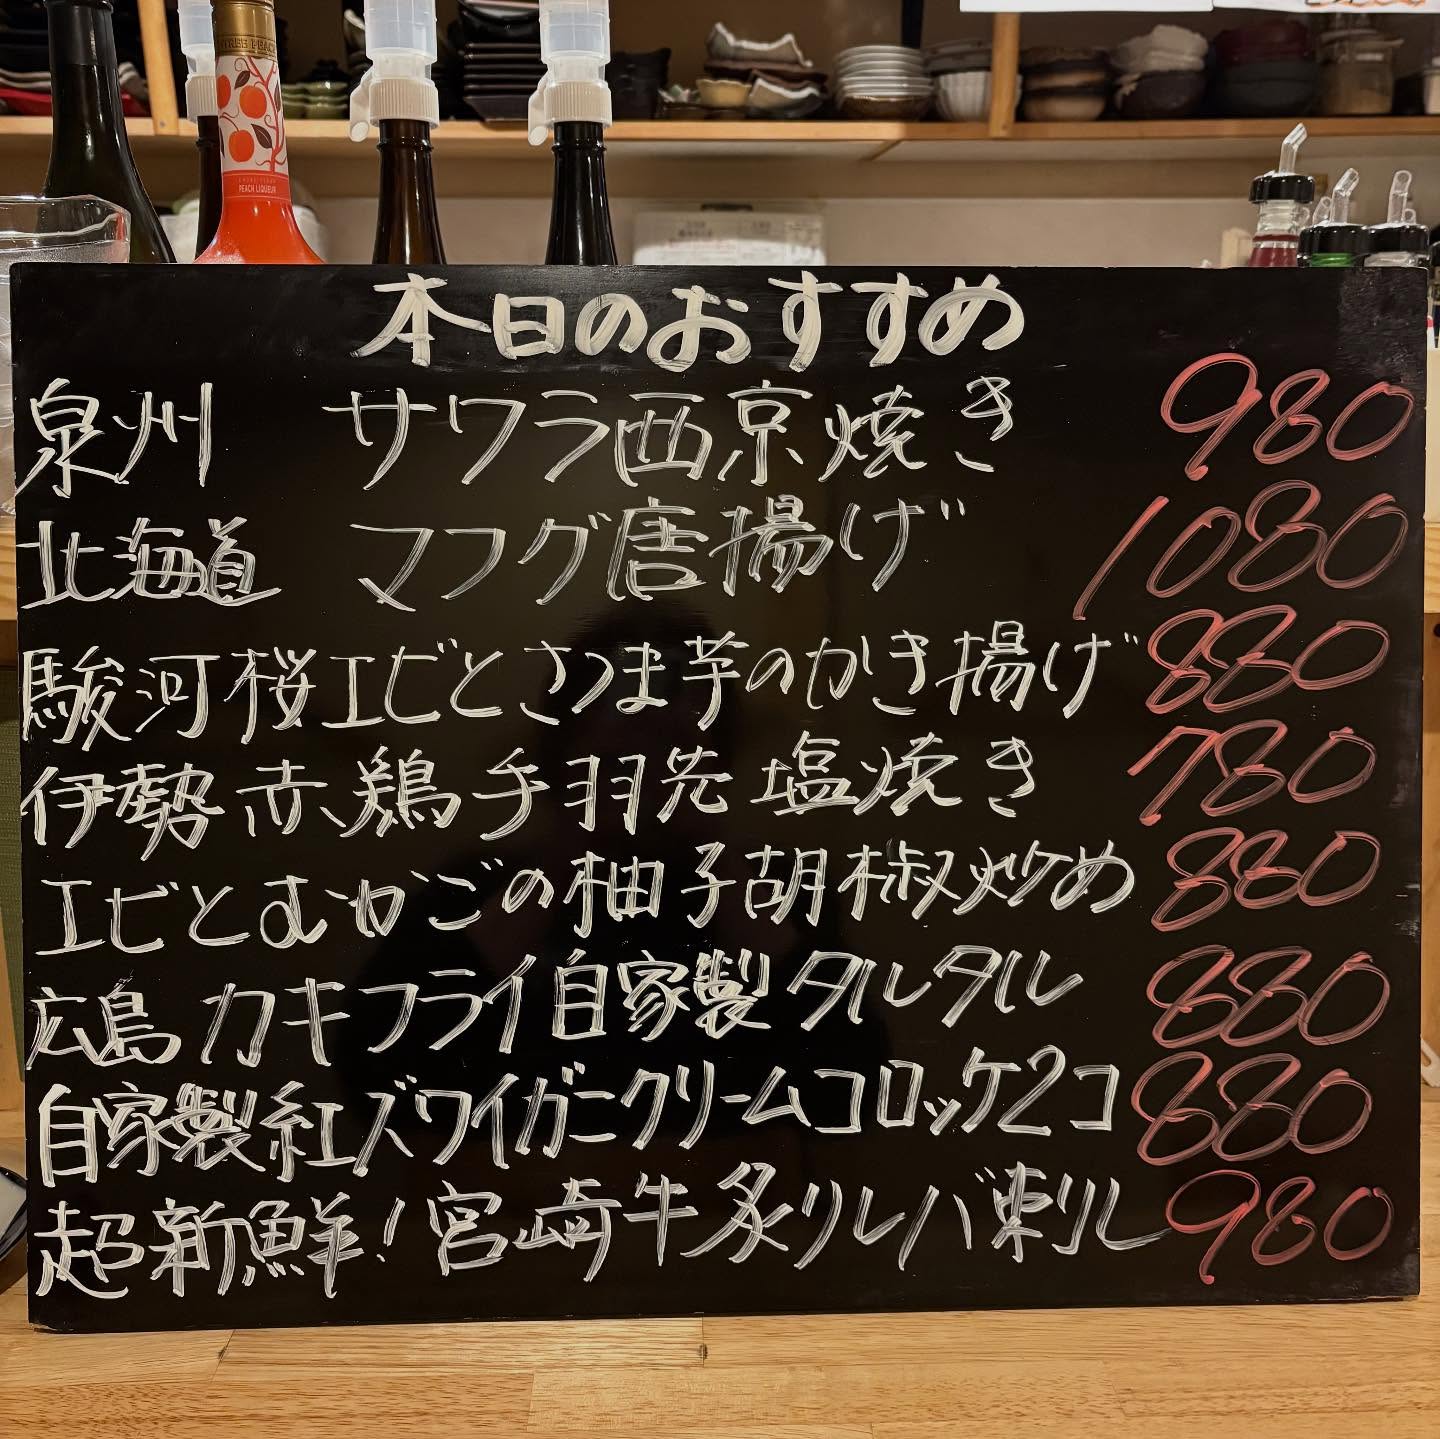 TREE PEACH
PEACH LIQUEUR
本日のおすすめ
泉州 サワラ西京焼き 980
北海道 マフグ唐揚げ 1080
駿河桜エビとさつま芋のかき揚げ 880
伊勢赤鶏手羽先塩焼き 780
エビとむかごの柚子胡椒炒め 880
広島カキフライ自家製タルタル 880
自家製紅ズワイガニクリームコロッケ2コ 880
超新鮮!宮崎牛炙りレバ刺し 980